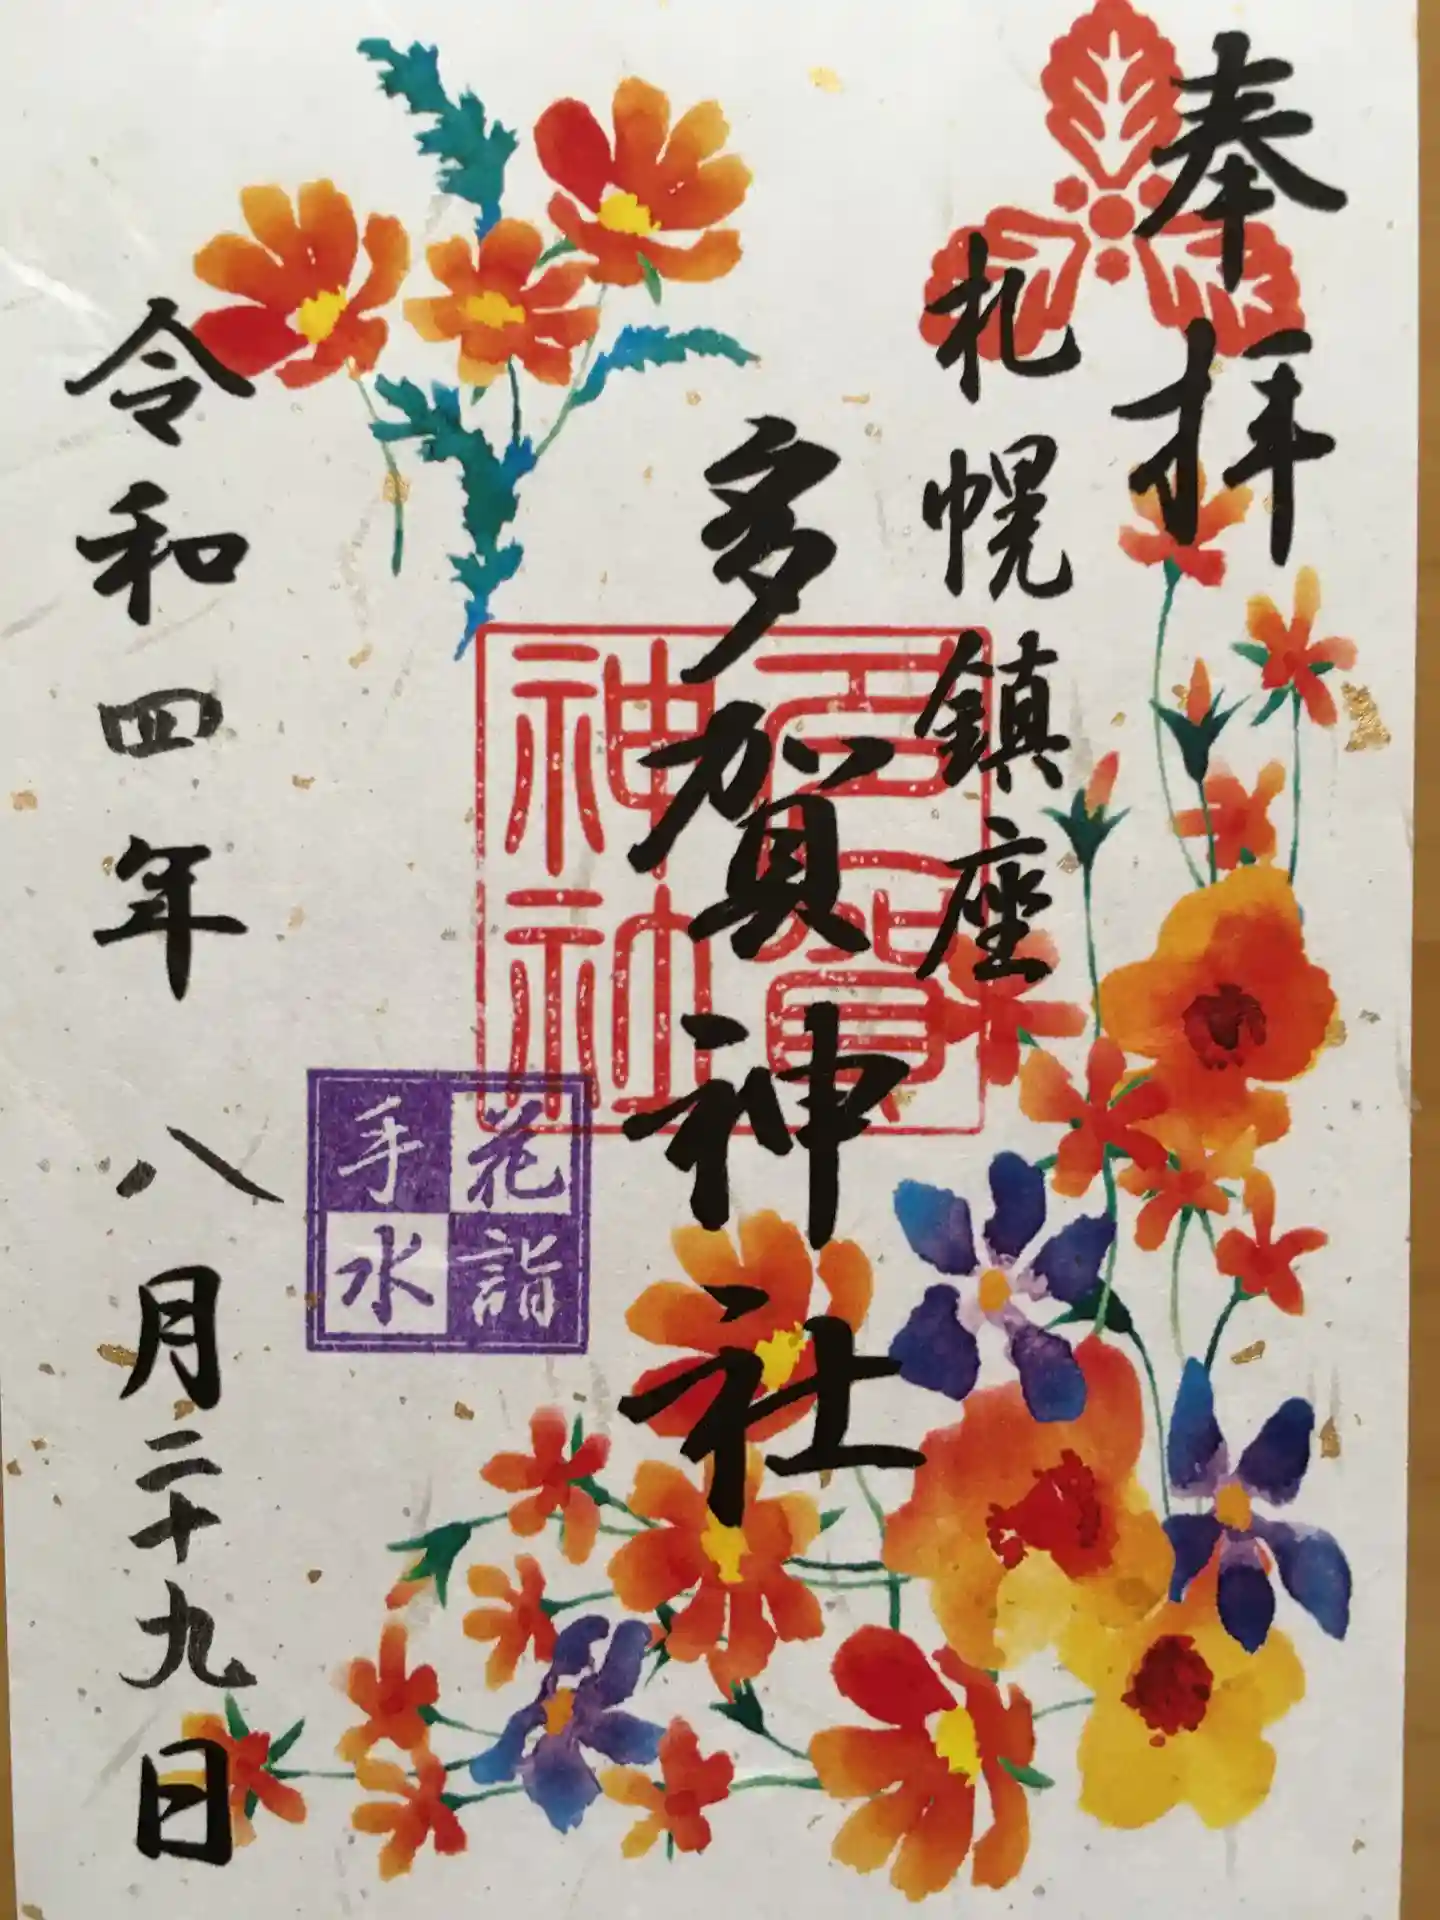 奉拝
札幌鎮座
多賀神社
多賀神社
花詣
手水
令和四年八月二十九日